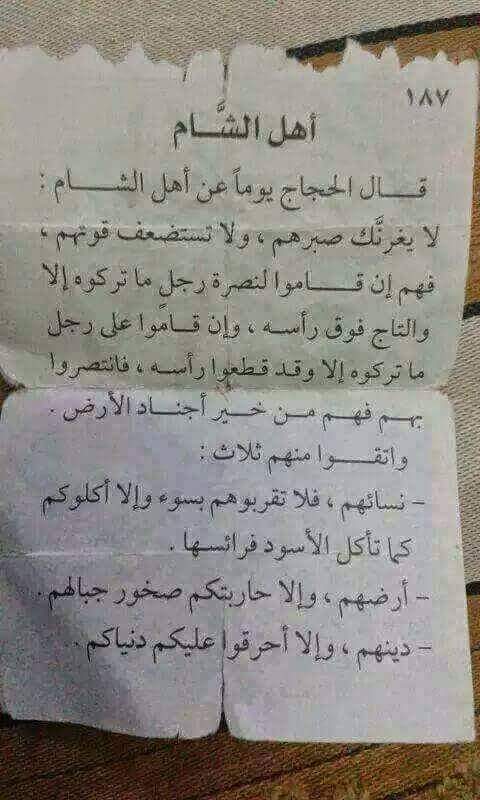 ١٨٧
أهل الشَّام
قال الحجاج يوماً عن أهل الشام :
لا يغرنَّك صبرهم ، ولا تستضعف قوتهم ،
فهم إن قاموا لنصرة رجل ما تركوه إلا
والتاج فوق رأسه ، وإن قاموا على رجل
ما تركوه إلا وقد قطعوا رأسه ، فانتصروا
بهم فهم من خير أجناد الأرض .
واتقوا منهم ثلاث :
- نسائهم ، فلا تقربوهم بسوء وإلا أكلوكم
كما تأكل الأسود فرائسها .
- أرضهم ، وإلا حاربتكم صخور جبالهم .
- دينهم ، وإلا أحرقوا عليكم دنياكم .